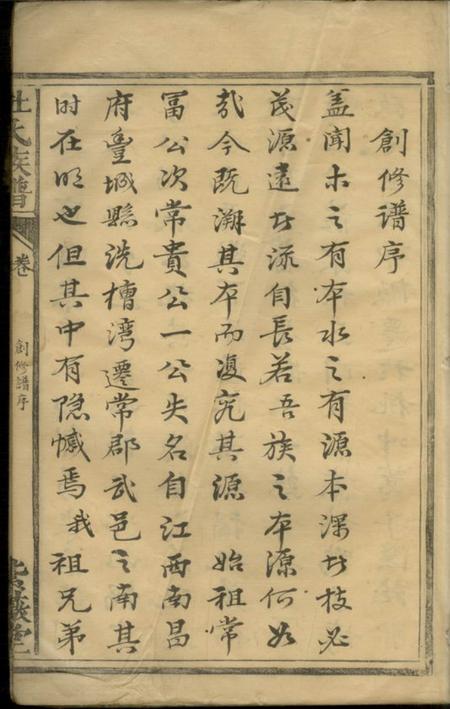 創修譜序
蓋聞木之有本水之有源本深者枝必
茂源遠者流自長若吾族之本源何如
哉今既溯其本而復究其源 始祖常
冨公次常貴公一公失名自江西南昌
府豐城縣洗槽灣遷常郡武邑之南其
时在明也但其中有隐憾焉我祖兄弟
杜氏族譜
卷
創修譜序
堂